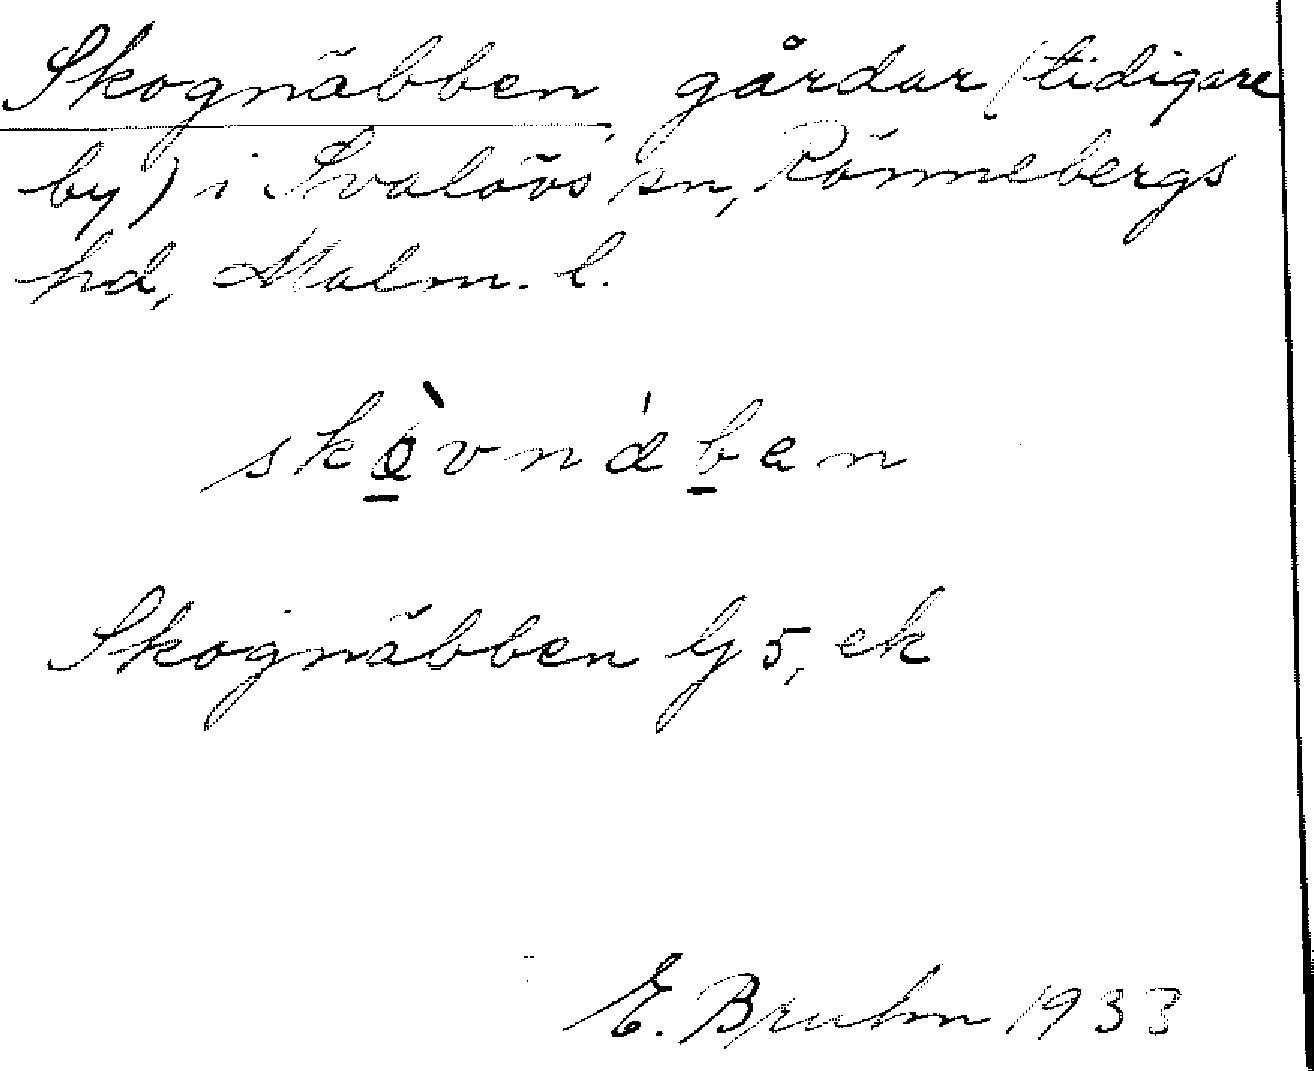 Skognäbben, gårdar (tidigare
by) i Svalövs sn, Rönnebergs
hd, Malm. l.
skòvnában
Skognäbben Gj 5, ek
E. Bruhn 1933